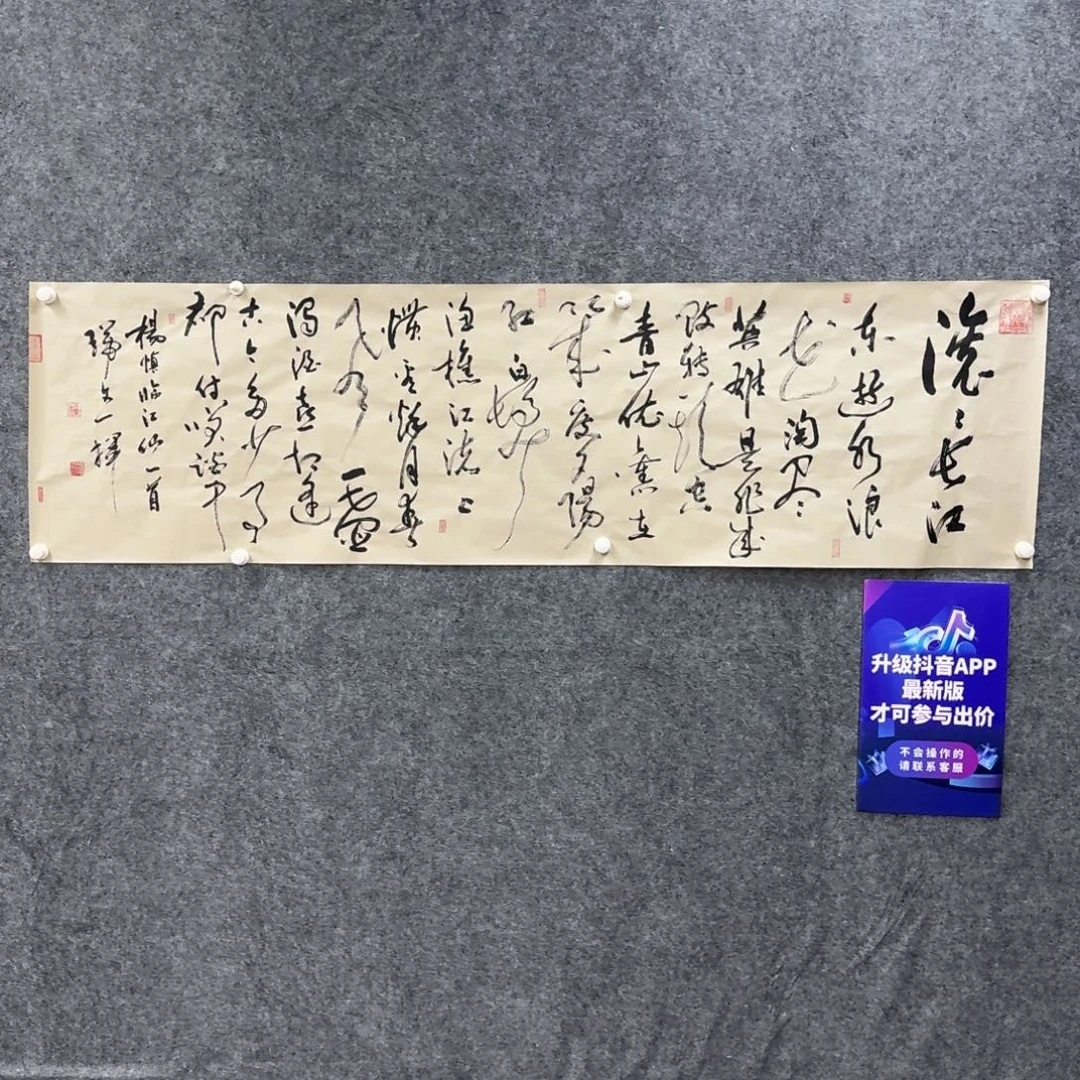 滚〻长江
东逝水浪
花淘尽
英雄是非成
败转头空
青山依旧在
几度夕阳
红白发
渔樵江渚上
惯看秋月春
风一壶
浊酒喜相逢
古今多少事
都付笑谈中
杨慎临江仙一首
瑞文一挥
升级抖音APP
最新版
才可参与出价
不会操作的
请联系客服